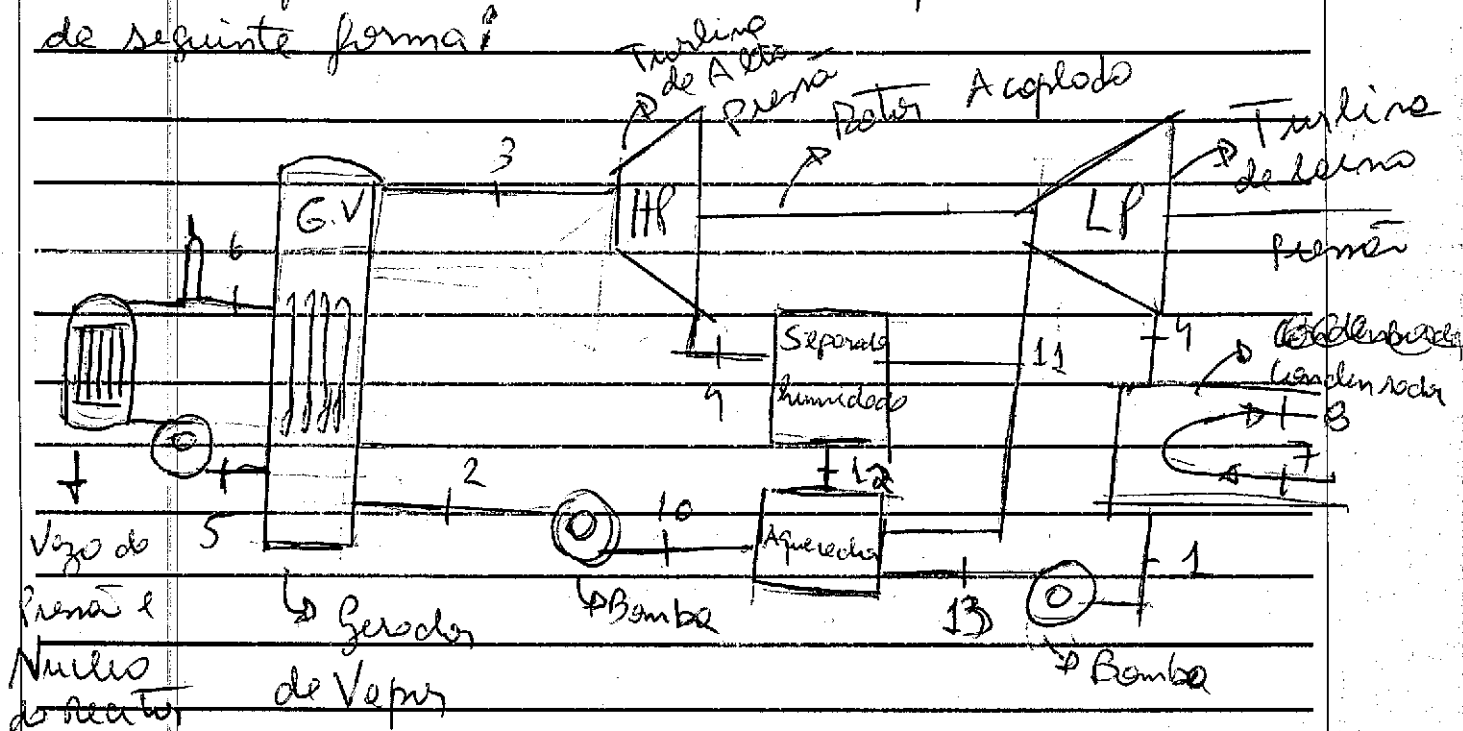 de seguinte forma:
Turbina
de Alta
Pressã
Rotor Acoplado
Turbina
de
Pressão
3
G.V
HP
LP
6
Separado
humidade
11
4
9
Condensador
8
7
12
2
10
Aquecedor
1
5
13
Vazo do
Pressão e
Nucleo
do reator
Gerador
de Vapor
Bomba
Bomba